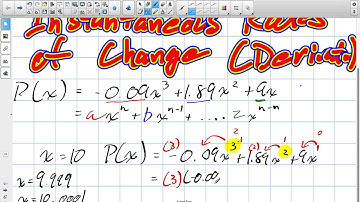 Instantaneous Rates
of Change (Derivativ
P(x) = -0.09x³ + 1.89x² + 9x
= axⁿ + bxⁿ⁻¹ + .... zxⁿ⁻ⁿ
2 1 0
x=10 P(x) = (3) -0.09x³ + (2) 1.89x² + 9x¹
x = 9.999 = (3)(-0.0
x = 10.0001